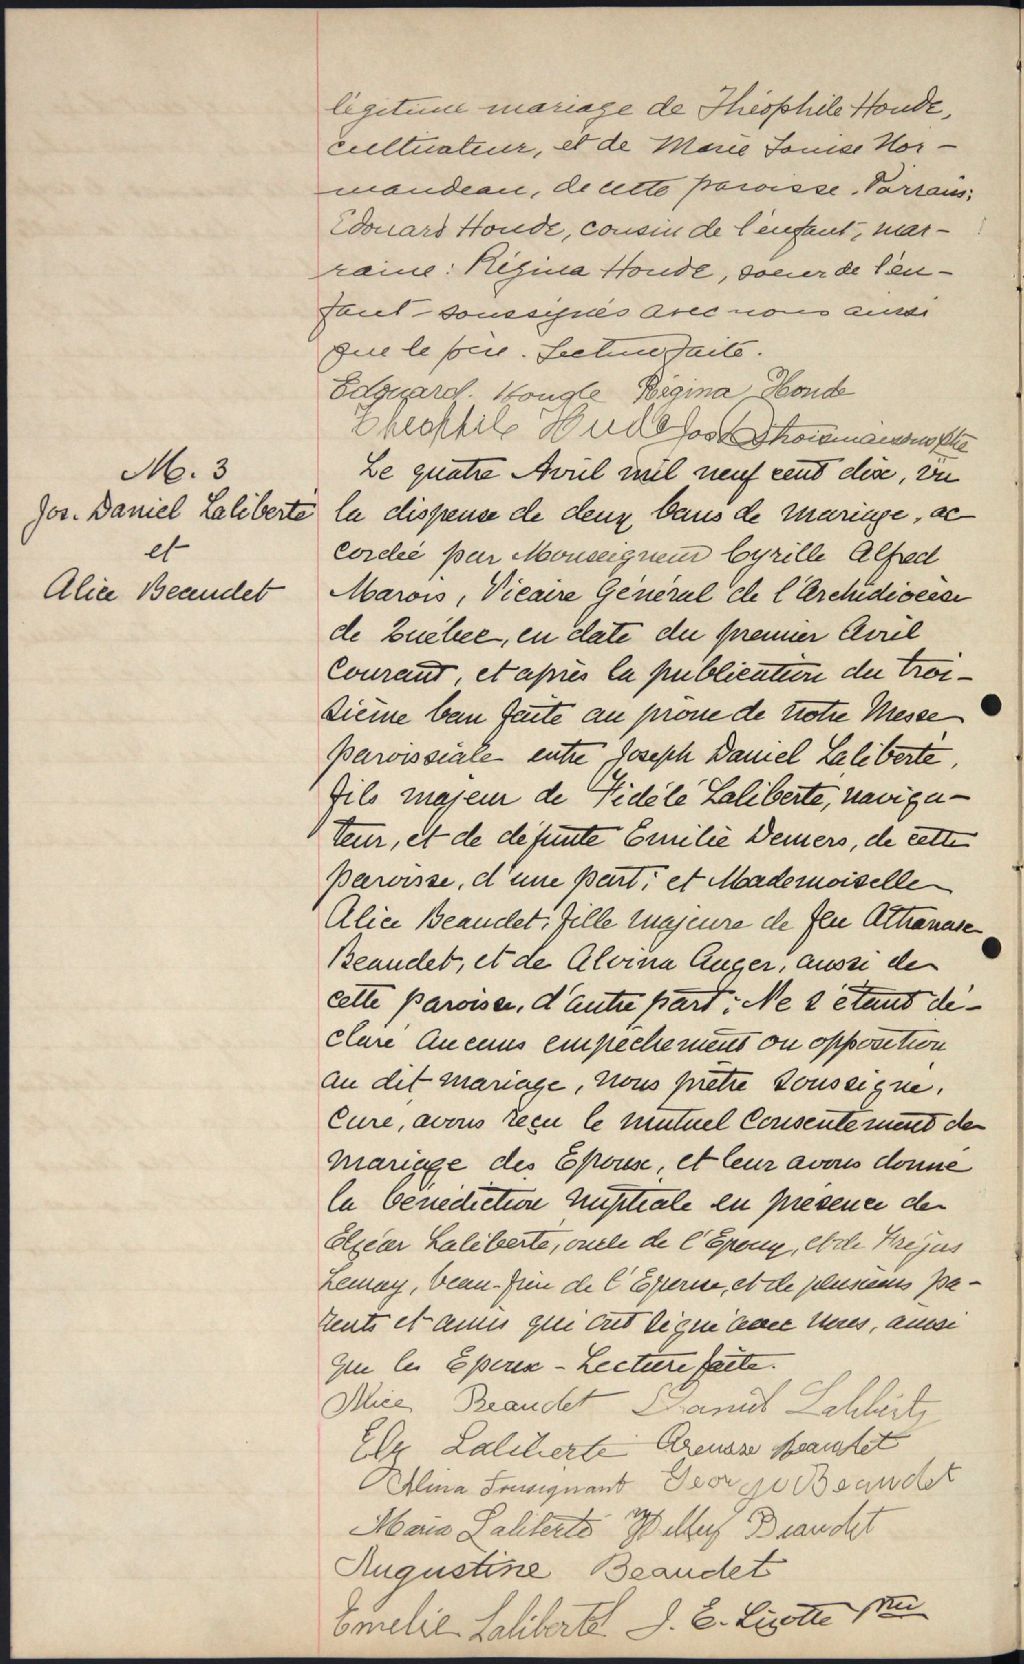 légitime mariage de Théophile Houde,
cultivateur, et de Marie Louise Nor-
mandeau, de cette paroisse. Parrain:
Edouard Houde, cousin de l'enfant, mar-
raine: Régina Houde, soeur de l'en-
fant soussignés avec nous ainsi
que le père. Lecture faite.
Edouard Houde Régina Houde
Théophile Houde Jos Desroismaisons Ptre
M. 3
Jos. Daniel Laliberté
et
Alice Beaudet
Le quatre Avril mil neuf cent dix, vu
la dispense de deux bans de mariage, ac-
cordée par Monseigneur Cyrille Alfred
Marois, Vicaire Général de l'Archidiocèse
de Québec, en date du premier Avril
Courant, et après la publication du troi-
sième ban faite au prône de notre Messe
paroissiale entre Joseph Daniel Laliberté,
fils majeur de Fidélé Laliberté, naviga-
teur, et de défunte Emilie Demers, de cette
paroisse, d'une part; et Mademoiselle
Alice Beaudet, fille majeure de feu Athanase
Beaudet, et de Alvina Auger, aussi de
cette paroisse, d'autre part; Ne s'étant dé-
claré aucuns empêchement ou opposition
au dit mariage, nous prêtre soussigné,
Curé, avons reçu le mutuel Consentement de
mariage des Epoux, et leur avons donné
la bénédiction nuptiale en présence de
Elzéar Laliberté, oncle de l'Epoux, et de Fréjus
Lemay, beau-frère de l'Epouse, et de plusieurs pa-
rents et amis qui ont signé avec nous, ainsi
que les Epoux - Lecture faite.
Alice Beaudet Daniel Laliberté
Elz Laliberté Beaudet
Alina Tousignant George Beaudet
Maria Laliberté Beaudet
Augustine Beaudet
Emelie Laliberté J. E. Lizotte Ptre